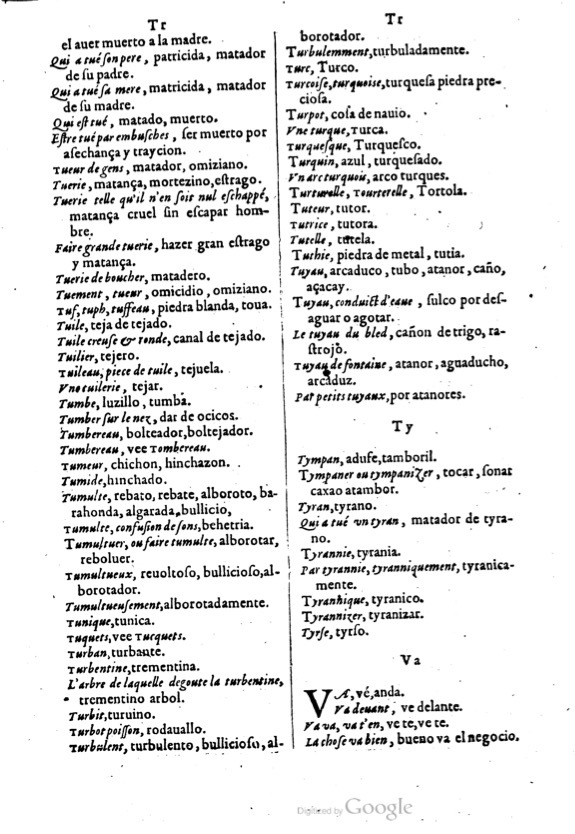 Tr
el auer muerto a la madre.
Qui a tué ſon pere, patricida, matador
de ſu padre.
Qui a tué ſa mere, matricida, matador
de ſu madre.
Qui eſt tué, matado, muerto.
Eſtre tué par embuſches, ſer muerto por
aſechança y traycion.
Tueur de gens, matador, omiziano.
Tuerie, matança, mortezino, eſtrago.
Tuerie telle qu'il n'en ſoit nul eſchappé,
matança cruel ſin eſcapar hom-
bre.
Faire grande tuerie, hazer gran eſtrago
y matança.
Tuerie de boucher, matadero.
Tuement, tueur, omicidio, omiziano.
Tuf, tuph, tuffeau, piedra blanda, toua.
Tuile, teja de tejado.
Tuile creuſe & ronde, canal de tejado.
Tuilier, tejero.
Tuileau, piece de tuile, tejuela.
Vne tuilerie, tejar.
Tumbe, luzillo, tumba.
Tumber ſur le nez, dar de ocicos.
Tumbereau, bolteador, boltejador.
Tumbereau, vee Tombereau.
Tumeur, chichon, hinchazon.
Tumide, hinchado.
Tumulte, rebato, rebate, alboroto, ba-
rahonda, algarada, bullicio,
Tumulte, confuſion de ſons, behetria.
Tumultuer, ou faire tumulte, alborotar,
reboluer.
Tumultueux, reuoltoſo, bullicioſo, al-
borotador.
Tumultueuſement, alborotadamente.
Tunique, tunica.
Tuquets, vee Tucquets.
Turban, turbante.
Turbentine, trementina.
L'arbre de laquelle degoute la turbentine,
trementino arbol.
Turbit, turuino.
Turbot poiſſon, rodauallo.
Turbulent, turbulento, bullicioſo, al-
Tr
borotador.
Turbulemment, turbuladamente.
Turc, Turco.
Turcoiſe, turquoiſe, turqueſa piedra pre-
cioſa.
Turpot, coſa de nauio.
Vne turque, Turca.
Turqueſque, Turqueſco.
Turquin, azul, turqueſado.
Vn arc turquois, arco turques.
Turturelle, Tourterelle, Tortola.
Tuteur, tutor.
Tutrice, tutora.
Tutelle, tutela.
Tuthie, piedra de metal, tutia.
Tuyau, arcaduco, tubo, atanor, caño,
açacay.
Tuyau, conduict d'eaue, ſulco por deſ-
aguar o agotar.
Le tuyau du bled, cañon de trigo, ra-
ſtrojo.
Tuyau de fontaine, atanor, aguaducho,
arcaduz.
Par petits tuyaux, por atanores.
Ty
Tympan, adufe, tamboril.
Tympaner ou tympanizer, tocar, ſonar
caxa o atambor.
Tyran, tyrano.
Qui a tué vn tyran, matador de tyra-
no.
Tyrannie, tyrania.
Par tyrannie, tyranniquement, tyranica-
mente.
Tyrannique, tyranico.
Tyrannizer, tyranizar.
Tyrſe, tyrſo.
Va
VA, vé, anda.
Va deuant, ve delante.
Va va, va t'en, ve te, ve te.
La choſe va bien, bueno va el negocio.
Digitized by Google